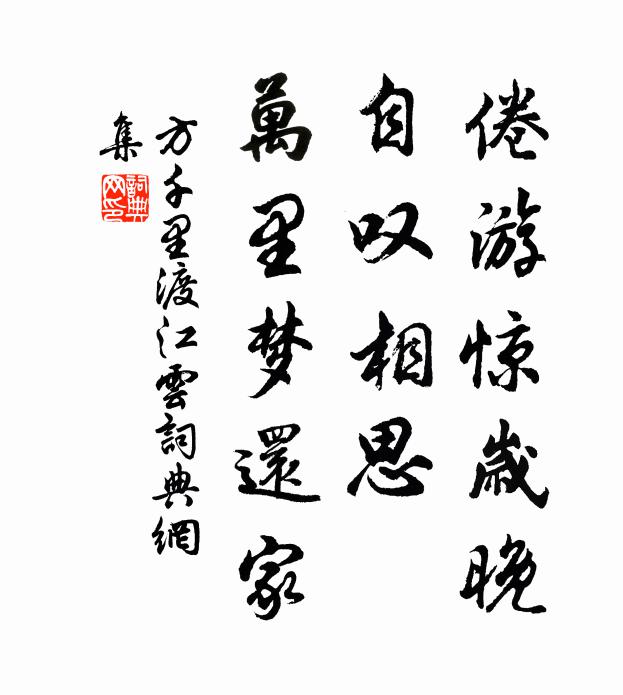 倦游惊歲晚
自叹相思
萬里梦還家
方千里渡江雲詞典網
集
詞典
网印